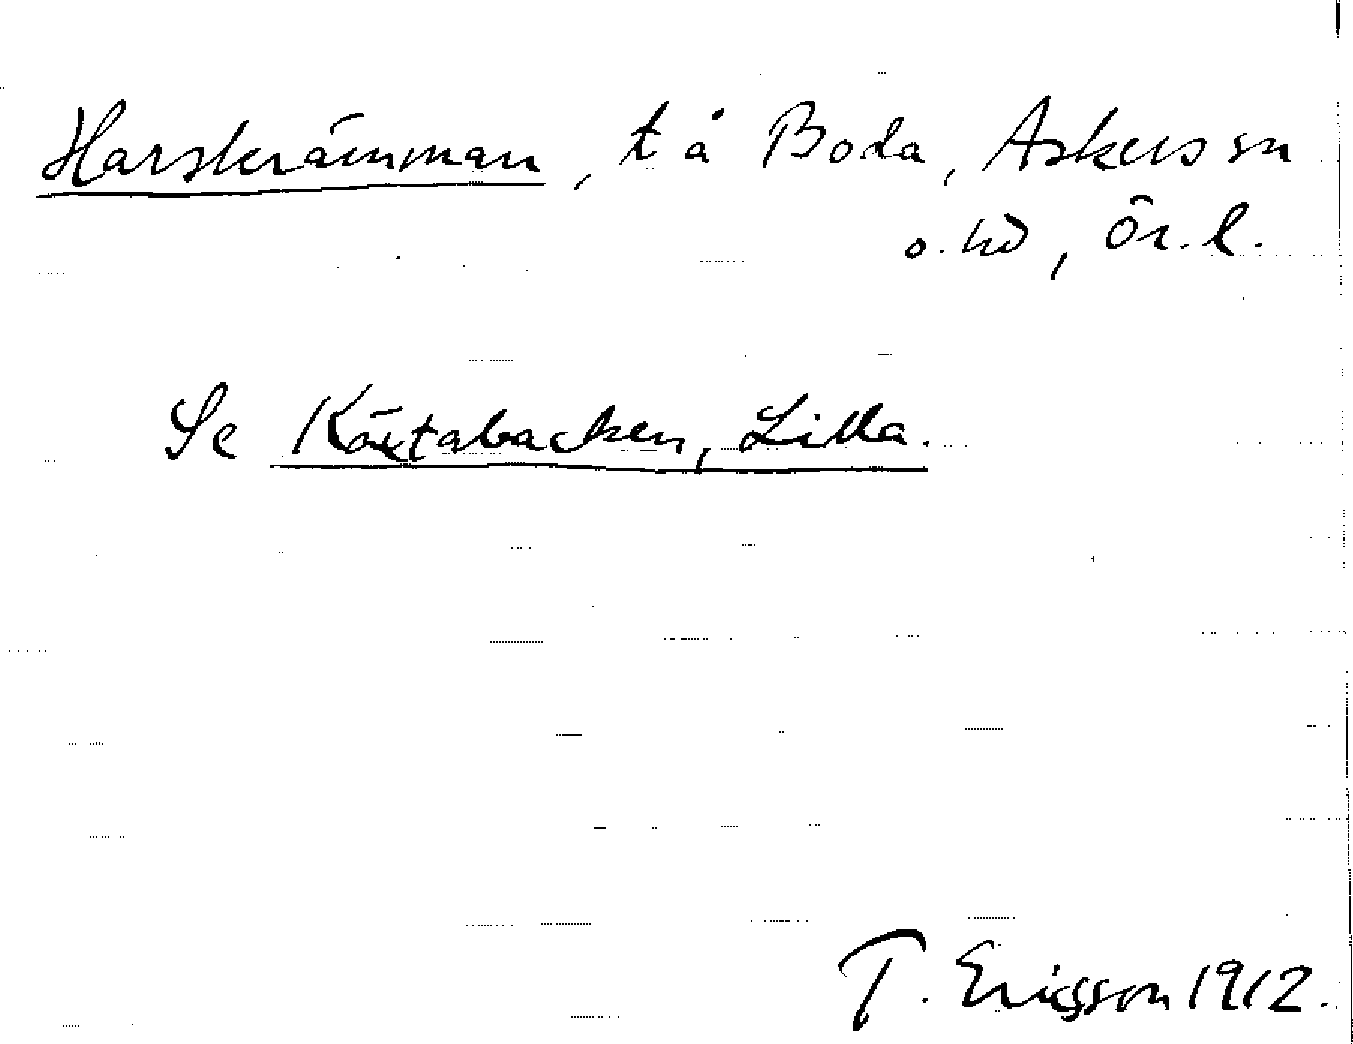 Harskrämman, t å Boda, Askers sn
o. hd, Ör. l.
Se Kärtabacken, Lilla.
T. Ericsson 1912.